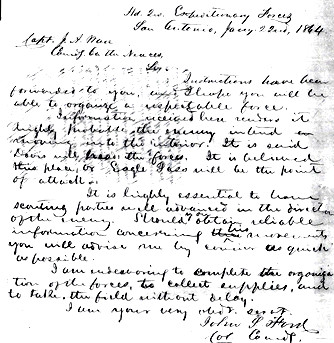 Hd. Qrs. Expeditionary Forces
San Antonio, Jany. 22nd, 1864
Capt. J. A. Ware
Comdg. Co. the Nueces.
Sir,
Instructions have been
forwarded to you, and I hope you will be
able to organize a respectable force.
Information received here renders it
highly probable the enemy intend on
moving into the interior. It is said
Davis will the forces. It is believed
this place, or Eagle Pass will be the point
of attack.
It is highly essential to have
scouting parties well advanced in the direction
of the enemy. Should obtain reliable
information concerning his movements
you will advise me by courier as quick
as possible.
I am endeavoring to complete the organiza
tion of the forces, to collect supplies, and
to take the field without delay.
I am your very obdt. servt.
John S. Ford
Col Comdg.